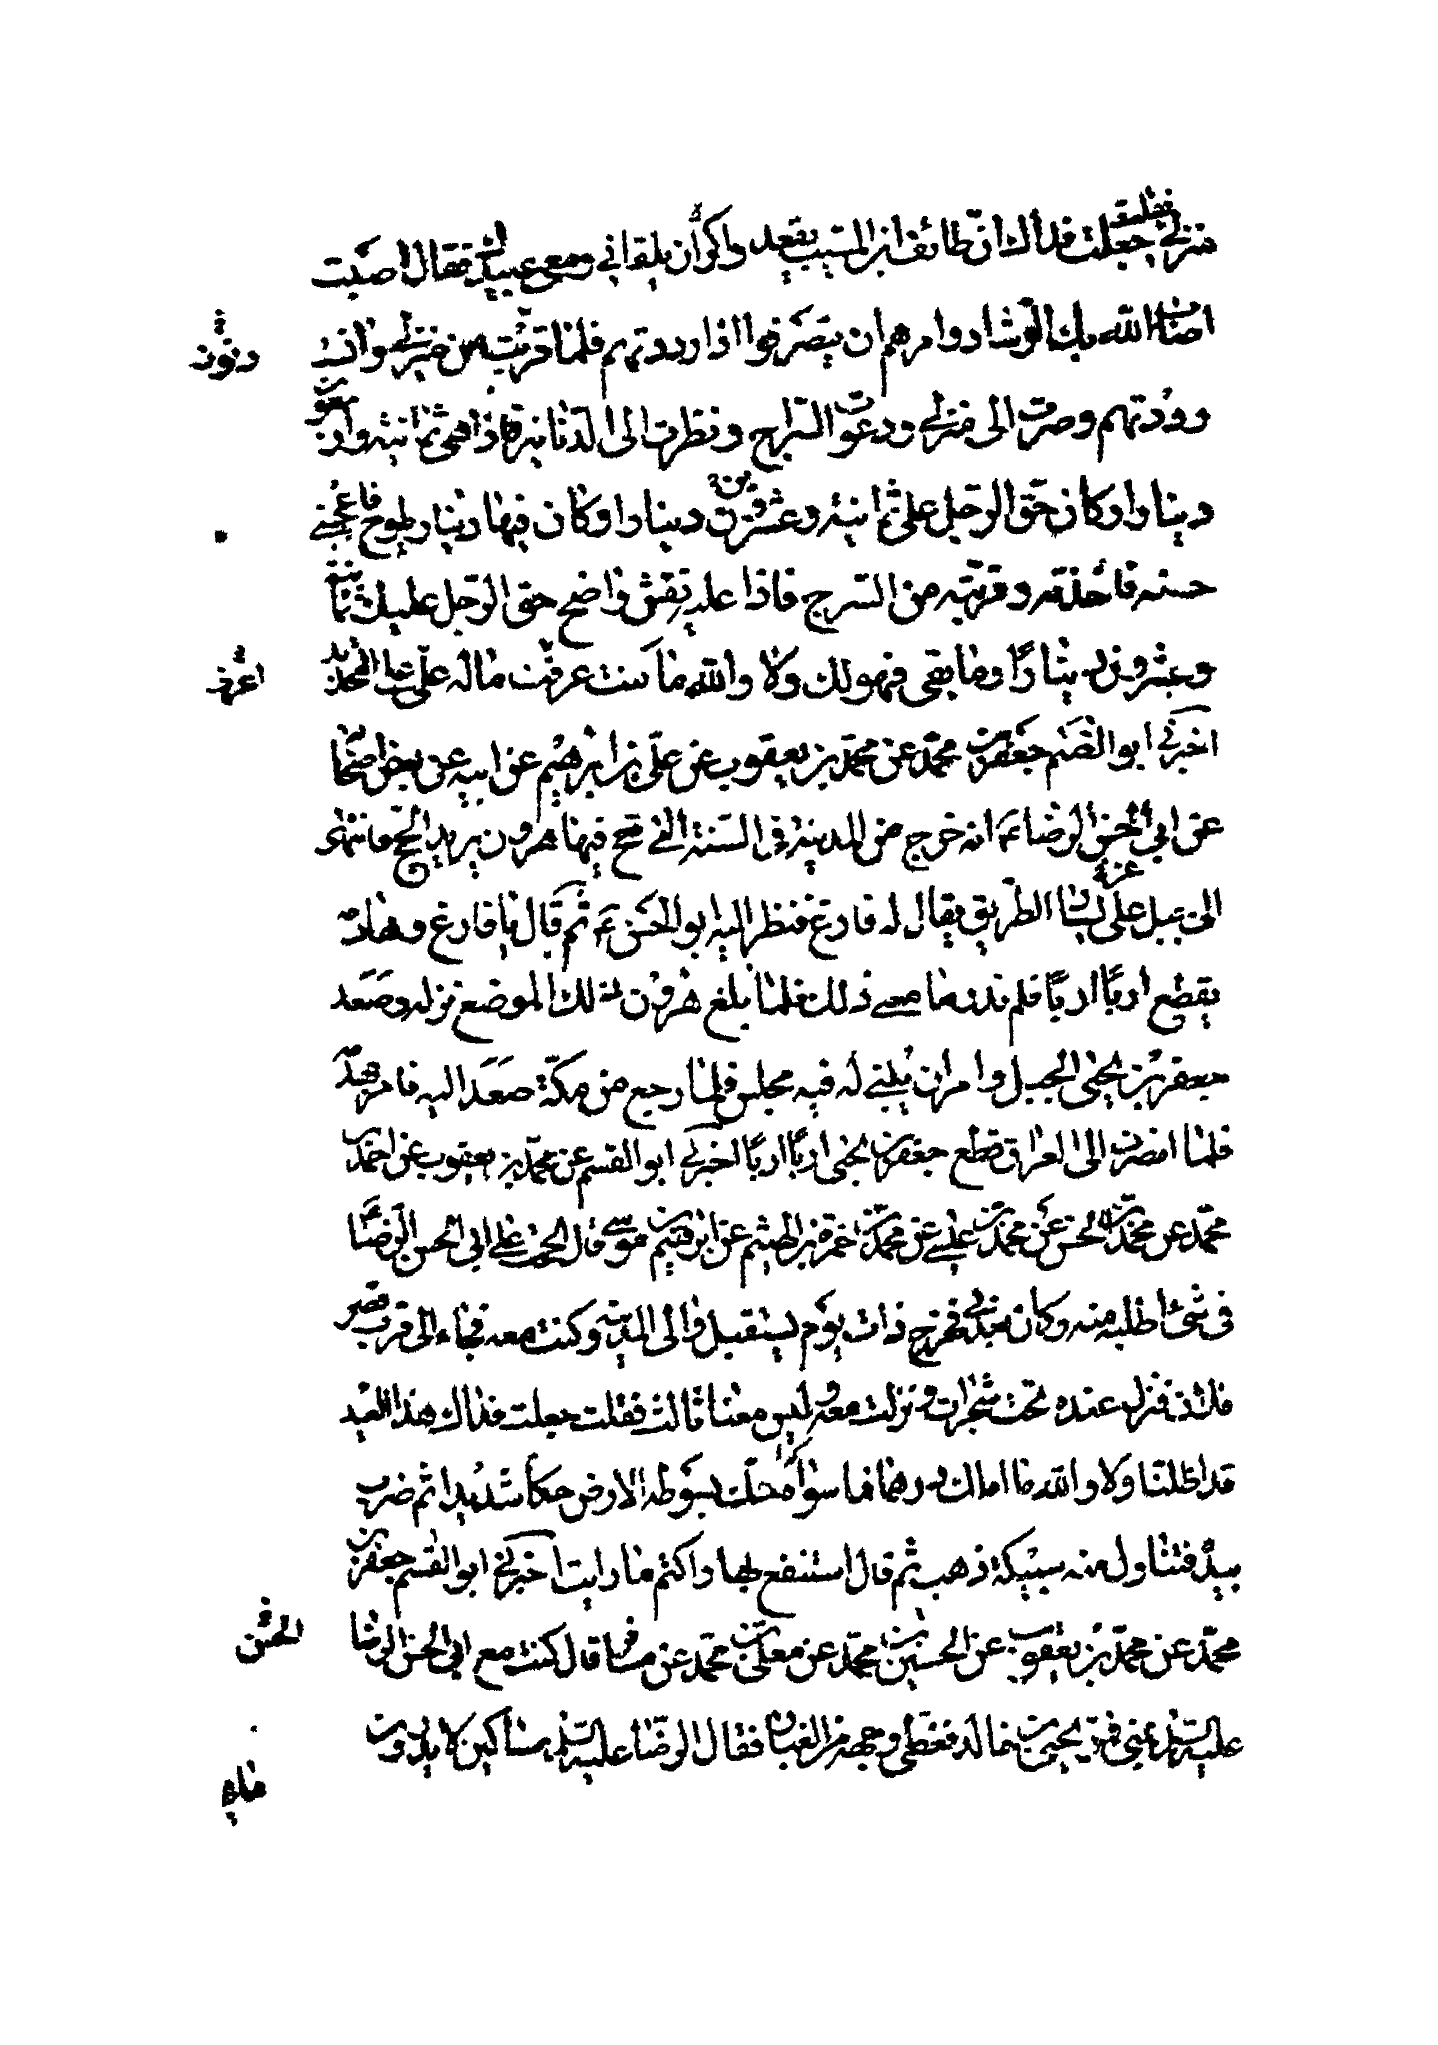 منزلي فقلت جعلت فداك ان طائف ابن المسيب يقعد واكره ان يلقاني ومعي عبيدك فقال اصبت
اصاب الله بك الرشاد وامرهم ان ينصرفوا اذا رددتهم فلما قربت من منزلي وانست
رددتهم وصرت الى منزلي ودعوت السراج ونظرت الى الدنانير فاذا هي ثمانية واربعون
دينارا وكان حق الرجل علي ثمانية وعشرون دينارا وكان فيها دينار يلوح فاعجبني
حسنه فاخذته وقربته من السراج فاذا عليه نقش واضح حق الرجل عليك ثمانية
وعشرون دينارا وما بقي فهو لك ولا والله ما كنت عرفت ماله علي على التحديد
اخبرني ابو القسم جعفر بن محمد عن محمد بن يعقوب عن علي بن ابرهيم عن ابيه عن بعض اصحابه
عن ابي الحسن الرضا ع م انه خرج من المدينة في السنة التي حج فيها هرون يريد الحج فانتهى
الى جبل على يسار الطريق يقال له فارع فنظر اليه ابو الحسن ع م ثم قال يا فارع وهادمه
يقطع اربا اربا فلم ندر ما معنى ذلك فلما بلغ هرون ذلك الموضع نزله وصعد
جعفر بن يحيى الجبل وامر ان يبنى له فيه مجلس فلما رجع من مكة صعد اليه فامر بهدمه
فلما انصرف الى العراق قطع جعفر بن يحيى اربا اربا اخبرني ابو القسم عن محمد بن يعقوب عن احمد بن
محمد عن محمد بن الحسن عن محمد بن عيسى عن محمد بن حمزة بن الهيثم عن ابرهيم بن موسى قال الححت على ابي الحسن الرضا ع
في شيء اطلبه منه وكان يعدني فخرج ذات يوم يستقبل والي المدينة وكنت معه فجاء الى قرب قصر
فلان فنزل عنده تحت شجرات ونزلت معه وليس معنا ثالث فقلت جعلت فداك هذا العيد
قد اظلنا ولا والله ما املك درهما فما سواه فحك بسوطه الارض حكا شديدا ثم ضرب
بيده فتناول منه سبيكة ذهب ثم قال استنفع بها واكتم ما رايت اخبرني ابو القسم جعفر بن
محمد عن محمد بن يعقوب عن الحسين بن محمد عن معلى بن محمد عن مسافر قال كنت مع ابي الحسن الرضا
عليه السلم بمنى فمر يحيى بن خالد فغطى وجهه من الغبار فقال الرضا عليه السلم مساكين لا يدرون